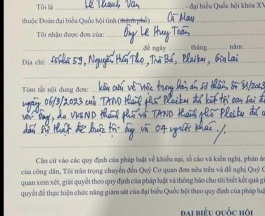 Tôi là Lê Thanh Vân - đại biểu Quốc hội khóa XV
thuộc Đoàn đại biểu Quốc hội tỉnh (thành phố) Cà Mau
Tôi nhận được đơn của: Ông Lê Huy Toàn
đề ngày tháng năm
Địa chỉ: 59, Nguyễn Hữu Thọ, Trà Bá, Pleiku, Gia Lai
Tóm tắt nội dung đơn: kêu cứu về việc trong bản án sơ thẩm số 31/2023
ngày 06/3/2023 của TAND thành phố Pleiku đã kết tội oan sai đối
với ông, do VKSND thành phố và TAND thành phố Pleiku
sự thật để buộc tội ông và 04 người khác.
Căn cứ vào các quy định của pháp luật về khiếu nại, tố cáo và kiến nghị, phản án
của công dân, Tôi trân trọng chuyển đến Quý Cơ quan đơn nêu trên và đề nghị Quý C
quan xem xét, giải quyết theo quy định của pháp luật và thông báo cho tôi biết kết quả gi
quyết để thực hiện chức năng giám sát của đại biểu Quốc hội theo quy định của pháp luậ
ĐẠI BIỂU QUỐC HỘI